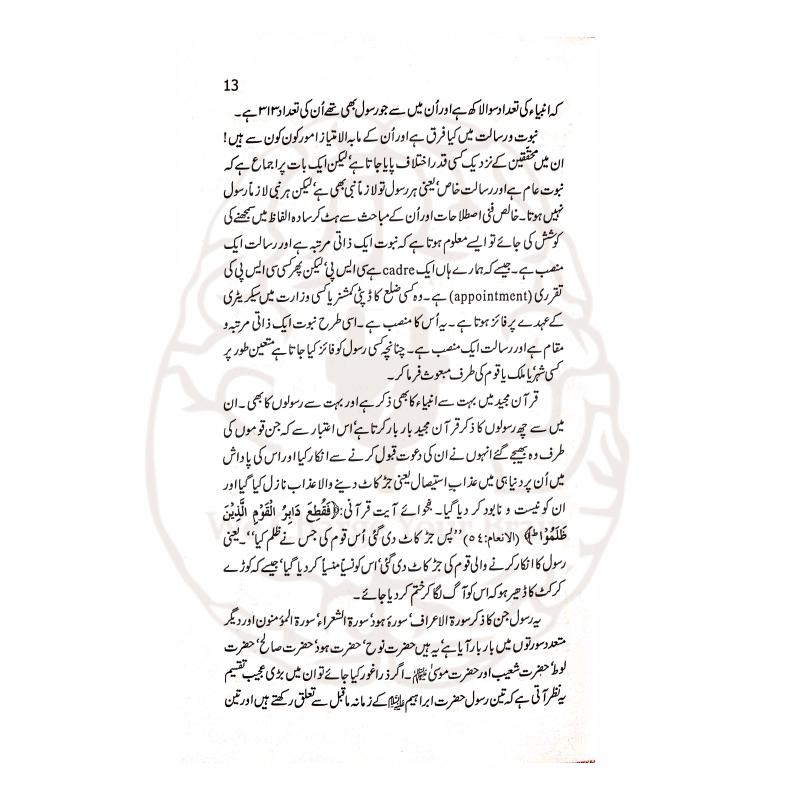 13
کہ انبیاء کی تعداد سوا لاکھ ہے اور اُن میں سے جو رسول بھی تھے اُن کی تعداد ۳۱۳ ہے۔
نبوت و رسالت میں کیا فرق ہے اور اُن کے مابہ الامتیاز امور کون کون سے ہیں!
ان میں محققین کے نزدیک کسی قدر اختلاف پایا جاتا ہے‘ لیکن ایک بات پر اجماع ہے کہ
نبوت عام ہے اور رسالت خاص‘ یعنی ہر رسول تو لازماً نبی بھی ہے‘ لیکن ہر نبی لازماً رسول
نہیں ہوتا۔ خالص فنی اصطلاحات اور اُن کے مباحث سے ہٹ کر سادہ الفاظ میں سمجھنے کی
کوشش کی جائے تو ایسے معلوم ہوتا ہے کہ نبوت ایک ذاتی مرتبہ ہے اور رسالت ایک
منصب ہے۔ جیسے کہ ہمارے ہاں ایک cadre ہے سی ایس پی‘ لیکن پھر کسی سی ایس پی کی
تقرری (appointment) ہے۔ وہ کسی ضلع کا ڈپٹی کمشنر یا کسی وزارت میں سیکریٹری
کے عہدے پر فائز ہوتا ہے۔ یہ اُس کا منصب ہے۔ اسی طرح نبوت ایک ذاتی مرتبہ و
مقام ہے اور رسالت ایک منصب ہے۔ چنانچہ کسی رسول کو فائز کیا جاتا ہے متعین طور پر
کسی شہر یا ملک یا قوم کی طرف مبعوث فرما کر۔
قرآن مجید میں بہت سے انبیاء کا بھی ذکر ہے اور بہت سے رسولوں کا بھی۔ ان
میں سے چھ رسولوں کا ذکر قرآن مجید بار بار کرتا ہے‘ اس اعتبار سے کہ جن قوموں کی
طرف وہ بھیجے گئے انہوں نے ان کی دعوت قبول کرنے سے انکار کیا اور اس کی پاداش
میں اُن پر دنیا ہی میں عذابِ استیصال یعنی جڑ کاٹ دینے والا عذاب نازل کیا گیا اور
ان کو نیست و نابود کر دیا گیا۔ بفحوائے آیت قرآنی: ﴿فَقُطِعَ دَابِرُ الْقَوْمِ الَّذِيْنَ
ظَلَمُوْا ؕ﴾ (الانعام:۵٤) ’’پس جڑ کاٹ دی گئی اُس قوم کی جس نے ظلم کیا‘‘۔ یعنی
رسول کا انکار کرنے والی قوم کی جڑ کاٹ دی گئی‘ اس کو نسیاً منسیاً کر دیا گیا‘ جیسے کہ کوڑے
کرکٹ کا ڈھیر ہو کہ اس کو آگ لگا کر ختم کر دیا جائے۔
یہ رسول جن کا ذکر سورۃ الاعراف‘ سورۂ ہود‘ سورۃ الشعراء‘ سورۃ المؤمنون اور دیگر
متعدد سورتوں میں بار بار آیا ہے‘ یہ ہیں حضرت نوح‘ حضرت ہود‘ حضرت صالح‘ حضرت
لوط‘ حضرت شعیب اور حضرت موسیٰ ۔ اگر ذرا غور کیا جائے تو ان میں بڑی عجیب تقسیم
یہ نظر آتی ہے کہ تین رسول حضرت ابراہیم علیہ السلام کے زمانہ ماقبل سے تعلق رکھتے ہیں اور تین